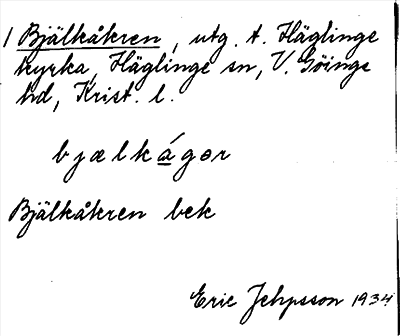 1 Bjälkåkren, utg. t. Häglinge
kyrka, Häglinge sn, V. Göinge
hd, Krist. l.
bjælkágər
Bjälkåkren bek
Eric Jepsson 1934